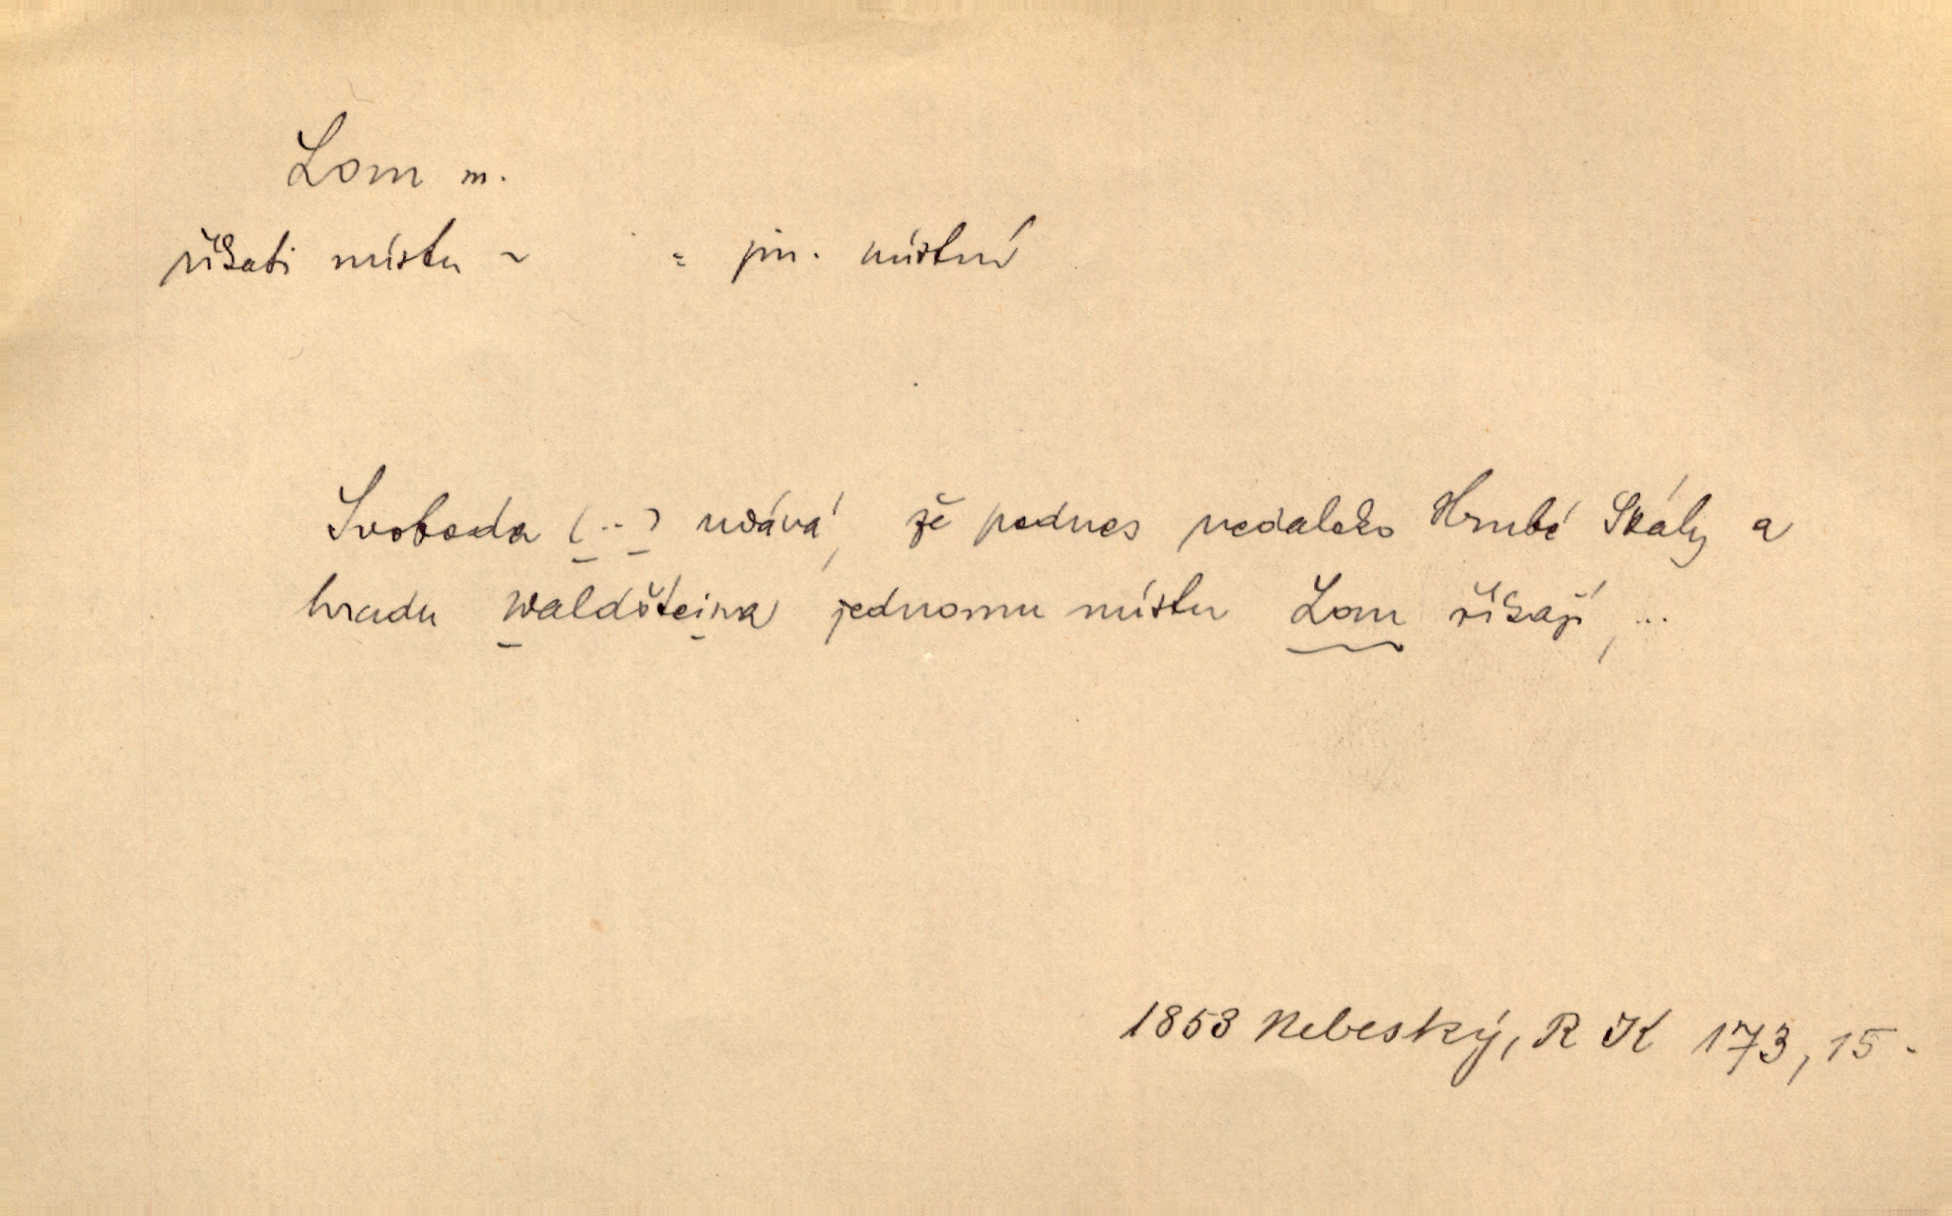 Lom m.
říkati místu ~ = jm. místní
Svoboda (..) udává, že podnes nedaleko Hrubé Skály a
hradu Waldšteina jednomu místu Lom říkají, ...
1853 Nebeský, R K 173, 15.